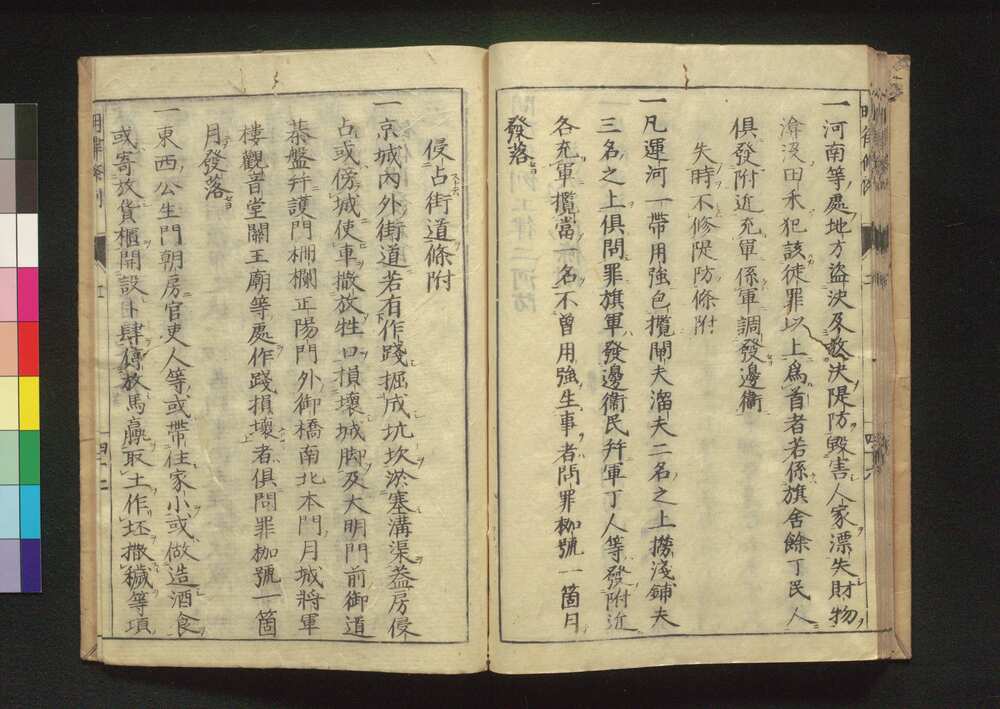 一河南等處地方盜決及故決隄防毀害人家漂失財物
渰沒田禾犯該徒罪以上爲首者若係旗舍餘丁民人
俱發附近充軍係軍調發邊衞
失時不修隄防條附
一凡運河一帶用強包攬閘夫溜夫二名之上撈淺鋪夫
三名之上俱問罪旗軍發邊衞民幷軍丁人等發附近
各充軍攬當一名不曾用強生事者問罪枷號一箇月
發落
侵占街道條附
一京城內外街道若有作踐掘成坑坎淤塞溝渠葢房侵
占或傍城使車撒放牲口損壞城脚及大明門前御道
棊盤幷護門柵欄正陽門外御橋南北本門月城將軍
樓觀音堂關王廟等處作踐損壞者俱問罪枷號一箇
月發落
一東西公生門朝房官吏人等或帶住家小或做造酒食
或寄放貨櫃開設卦肆停放馬驘取土作坯撒穢等項